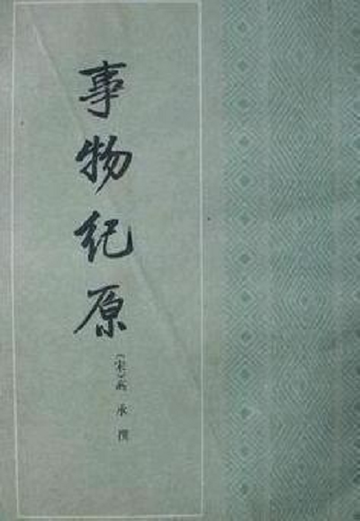 事物纪原
〔宋〕高承撰